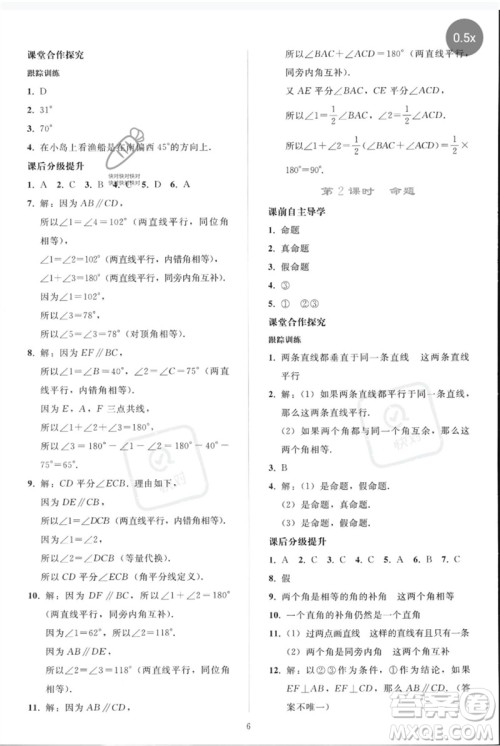 0.5x
课堂合作探究
跟踪训练
1. D
2. 31°
3. 70°
4. 在小岛上看渔船的方向在南偏西45°的方向上.
课后分级提升
1. A 2. C 3. B 4. C 5. D 6. A
7. 解：因为AB∥CD，
所以∠1=∠4=102°（两直线平行，内错角相等），
∠1=∠2=102°（两直线平行，内错角相等），
∠1+∠3=180°（两直线平行，同旁内角互补）.
因为∠1=102°，
所以∠3=78°.
所以∠5=∠3=78°（对顶角相等）.
8. 解：因为EF∥BC，
所以∠1=∠B=40°，∠2+∠3=180°（两直线平行，内错角相等）.
因为E，A，F三点共线，
所以∠1+∠2+∠3=180°.
所以∠3=180°－∠1－∠2=180°－40°－75°=65°.
9. 解：因为CD平分∠ECB（已知），
所以∠2=∠DCB（角平分线定义）.
因为DE∥CB，
所以∠1=∠DCB（两直线平行，内错角相等）.
所以∠1=∠2（等量代换）.
所以CD平分∠ECB（角平分线定义）.
10. 解：因为AB∥CD，
所以∠1+∠2=180°（两直线平行，同旁内角互补）.
因为∠1=62°，
所以∠2=118°.
因为AC∥BD，
所以∠3=∠2=118°（两直线平行，同位角相等）.
所以∠2=118°，∠3=118°.
11. 解：因为AB∥CD，
所以∠BAC+∠ACD=180°（两直线平行，同旁内角互补）.
又AE平分∠BAC，CE平分∠ACD，
所以∠1=1/2∠BAC，∠2=1/2∠ACD.
所以∠1+∠2=1/2（∠BAC+∠ACD）=1/2
×180°=90°.
第2课时 命题
课前自主导学
1. 命题
2. 真命题
3. 假命题
4. ③
5. ① ②③
课堂合作探究
跟踪训练
1. 两条直线都垂直于同一条直线 这两条直线平行
2. 解：（1）如果两条直线平行于同一条直线，那么这两条直线平行.
（2）如果两个角都与同一个角互余，那么这两个角相等.
3. B
4. 解：（1）是命题，是真命题.
（2）是命题，是假命题.
课后分级提升
1. A 2. C 3. D 4. C 5. A 6. C 7. A
8. 假
9. 两个角是等角的补角 这两个角相等
10. 一个直角的补角仍然是一个直角
11. （1）过两点画直线 这样的直线有且只有一条
（2）两个角是同旁内角 这两个角互补
12. 解：以②③作为条件，①作为结论，如果EF⊥AB，CD⊥AB，那么EF∥CD.（答案不唯一）
6
快对
答案圈
MXQE.COM